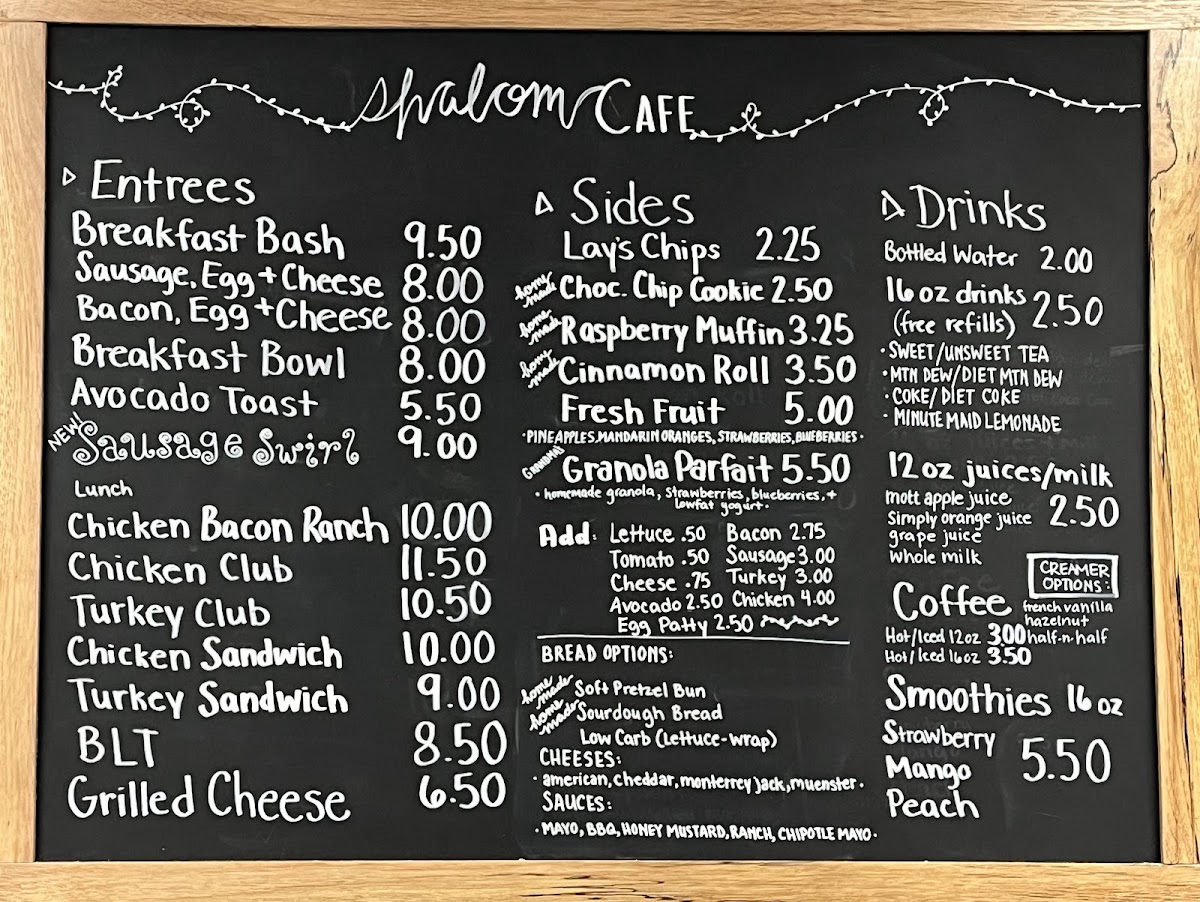 shalom CAFE
Entrees
Breakfast Bash 9.50
Sausage, Egg + Cheese 8.00
Bacon, Egg + Cheese 8.00
Breakfast Bowl 8.00
Avocado Toast 5.50
NEW! Sausage Swirl 9.00
Lunch
Chicken Bacon Ranch 10.00
Chicken Club 11.50
Turkey Club 10.50
Chicken Sandwich 10.00
Turkey Sandwich 9.00
BLT 8.50
Grilled Cheese 6.50
Sides
Lay's Chips 2.25
home made Choc. Chip Cookie 2.50
home made Raspberry Muffin 3.25
home made Cinnamon Roll 3.50
Fresh Fruit 5.00
· PINEAPPLES, MANDARIN ORANGES, STRAWBERRIES, BLUEBERRIES ·
GRANDMA'S Granola Parfait 5.50
· homemade granola, strawberries, blueberries, +
lowfat yogurt ·
Add: Lettuce .50 Bacon 2.75
Tomato .50 Sausage 3.00
Cheese .75 Turkey 3.00
Avocado 2.50 Chicken 4.00
Egg Patty 2.50
BREAD OPTIONS:
home made Soft Pretzel Bun
home made Sourdough Bread
Low Carb (Lettuce-wrap)
CHEESES:
· american, cheddar, monterrey jack, muenster ·
SAUCES:
· MAYO, BBQ, HONEY MUSTARD, RANCH, CHIPOTLE MAYO ·
Drinks
Bottled Water 2.00
16 oz drinks 2.50
(free refills)
· SWEET/UNSWEET TEA
· MTN DEW/DIET MTN DEW
· COKE/DIET COKE
· MINUTE MAID LEMONADE
12 oz juices/milk
mott apple juice 2.50
Simply orange juice
grape juice
whole milk
Coffee
Hot/Iced 12oz 3.00
Hot/Iced 16oz 3.50
CREAMER OPTIONS:
french vanilla
hazelnut
half-n-half
Smoothies 16 oz
Strawberry 5.50
Mango
Peach